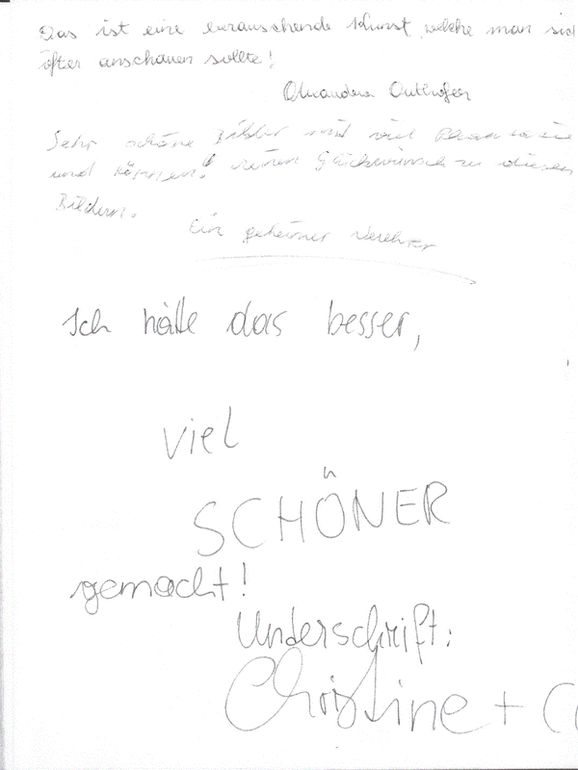 Das ist eine berauschende Kunst, welche man sich
öfter anschauen sollte!
Sehr schöne Bilder mit viel Phantasie
und Können! Meinen Glückwunsch zu diesen
Bildern.
Ein geheimer Verehrer
Ich hätte das besser,
viel
SCHÖNER
gemacht!
Underschrift:
Christine +